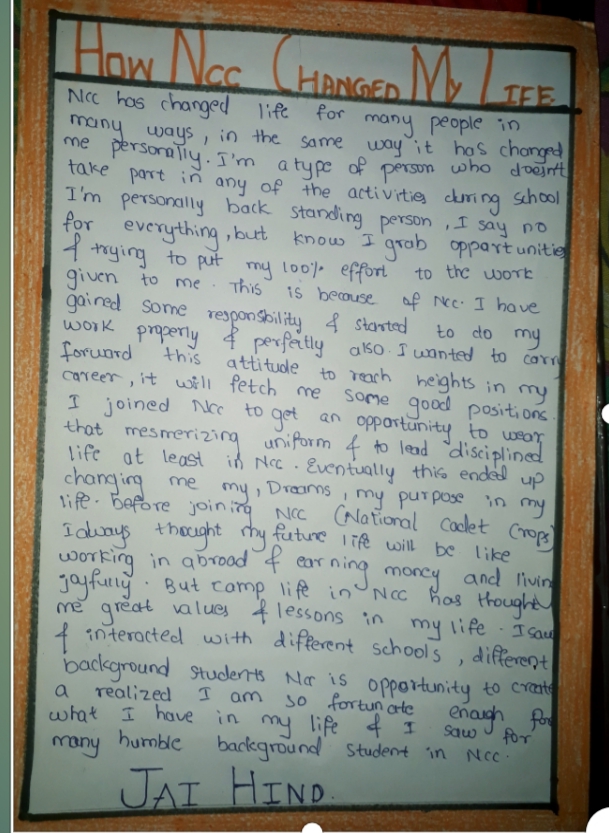 HOW NCC CHANGED MY LIFE
Ncc has changed life for many people in
many ways, in the same way it has changed
me personally. I'm a type of person who doesn't
take part in any of the activities during school
I'm personally back standing person, I say no
for everything, but know I grab opportunities
& trying to put my 100% effort to the work
given to me. This is because of Ncc. I have
gained some responsbility & started to do my
work properly & perfectly also. I wanted to carry
forward this attitude to reach heights in my
career, it will fetch me some good positions.
I joined Ncc to get an opportunity to wear
that mesmerizing uniform & to lead disciplined
life at least in Ncc. Eventually this ended up
changing me my, Dreams, my purpose in my
life. before joining NCC (National Cadet Crops)
I always thought my future life will be like
working in abroad & earning money and livin
joyfully. But camp life in NCC has thought
me great values & lessons in my life. I saw
& interacted with different schools, different
background students Ncc is opportunity to create
a realized I am so fortunate enough for
what I have in my life & I saw for
many humble background student in NCC.
JAI HIND.